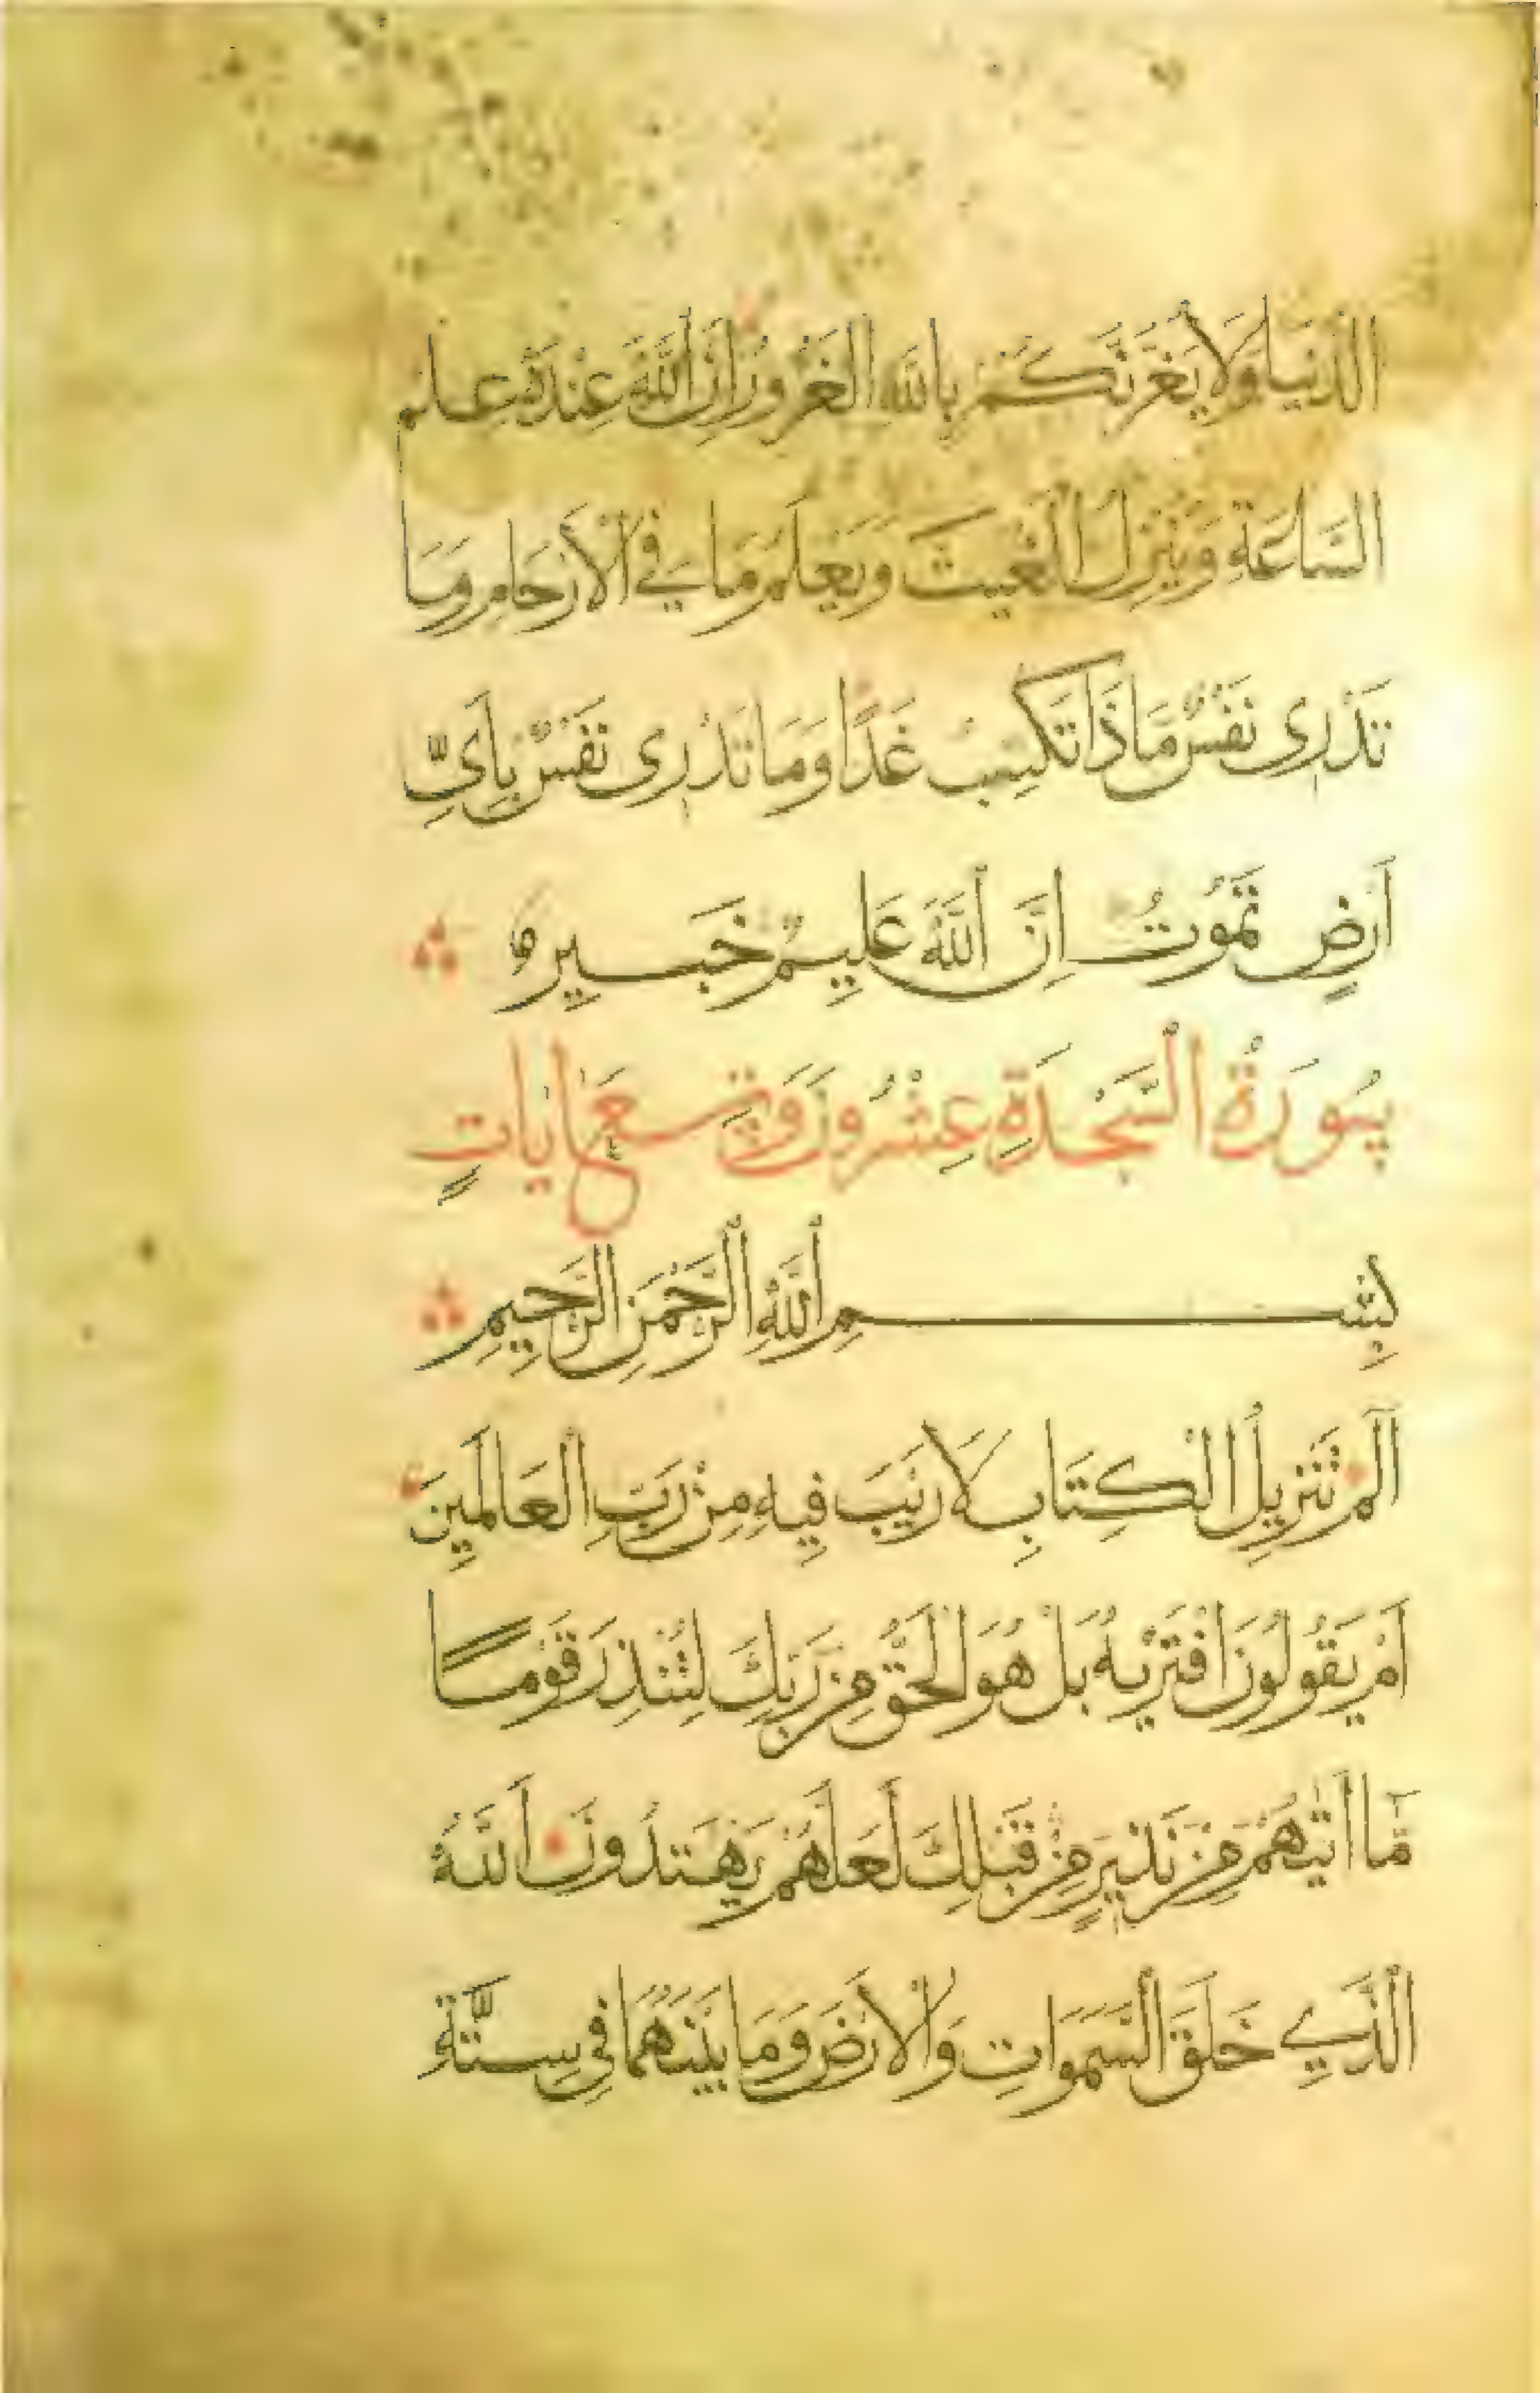 الدُّنْيَا وَلَا يَغُرَّنَّكُمْ بِاللَّهِ الْغَرُورُ إِنَّ اللَّهَ عِنْدَهُ عِلْمُ
السَّاعَةِ وَيُنَزِّلُ الْغَيْثَ وَيَعْلَمُ مَا فِي الْأَرْحَامِ وَمَا
تَدْرِى نَفْسٌ مَاذَا تَكْسِبُ غَدًا وَمَا تَدْرِى نَفْسٌ بِأَىِّ
أَرْضٍ تَمُوتُ إِنَّ اللَّهَ عَلِيمٌ خَبِيرٌ
سُورَةُ السَّجْدَةِ عِشْرُونَ وَتِسْعُ اٰيَاتٍ
بِسْمِ اللَّهِ الرَّحْمٰنِ الرَّحِيمِ
الٓمٓ تَنْزِيلُ الْكِتَابِ لَا رَيْبَ فِيهِ مِنْ رَبِّ الْعَالَمِينَ
أَمْ يَقُولُونَ افْتَرٰيهُ بَلْ هُوَ الْحَقُّ مِنْ رَبِّكَ لِتُنْذِرَ قَوْمًا
مَّا أَتٰيهُمْ مِنْ نَذِيرٍ مِنْ قَبْلِكَ لَعَلَّهُمْ يَهْتَدُونَ اَللَّهُ
الَّذِي خَلَقَ السَّمٰوَاتِ وَالْأَرْضَ وَمَا بَيْنَهُمَا فِي سِتَّةِ